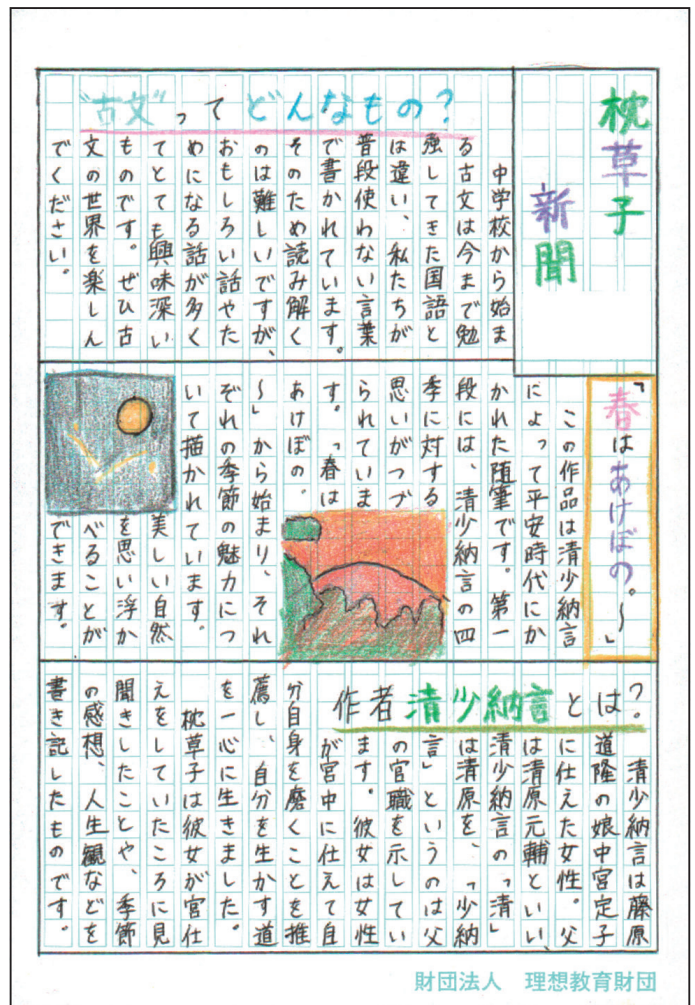 枕草子
新聞
"古文"ってどんなもの?
中学校から始ま
る古文は今まで勉
強してきた国語と
は違い、私たちが
普段使わない言葉
で書かれています。
そのため読み解く
のは難しいですが、
おもしろい話やた
めになる話が多く
てとても興味深い
ものです。ぜひ古
文の世界を楽しん
でください。
「春はあけぼの。〜」
この作品は清少納言
によって平安時代にか
かれた随筆です。第一
段には、清少納言の四
季に対する
思いがつづ
られていま
す。「春は
あけぼの。
〜」から始まり、それ
ぞれの季節の魅力につ
いて描かれています。
美しい自然
を思い浮か
べることが
できます。
作者清少納言とは?
清少納言は藤原
道隆の娘中宮定子
に仕えた女性。父
は清原元輔といい、
清少納言の「清」
は清原を、「少納
言」というのは父
の官職を示してい
ます。彼女は女性
が宮中に仕えて自
分自身を磨くことを推
薦し、自分を生かす道
を一心に生きました。
枕草子は彼女が宮仕
えをしていたころに見
聞きしたことや、季節
の感想、人生観などを
書き記したものです。
財団法人 理想教育財団